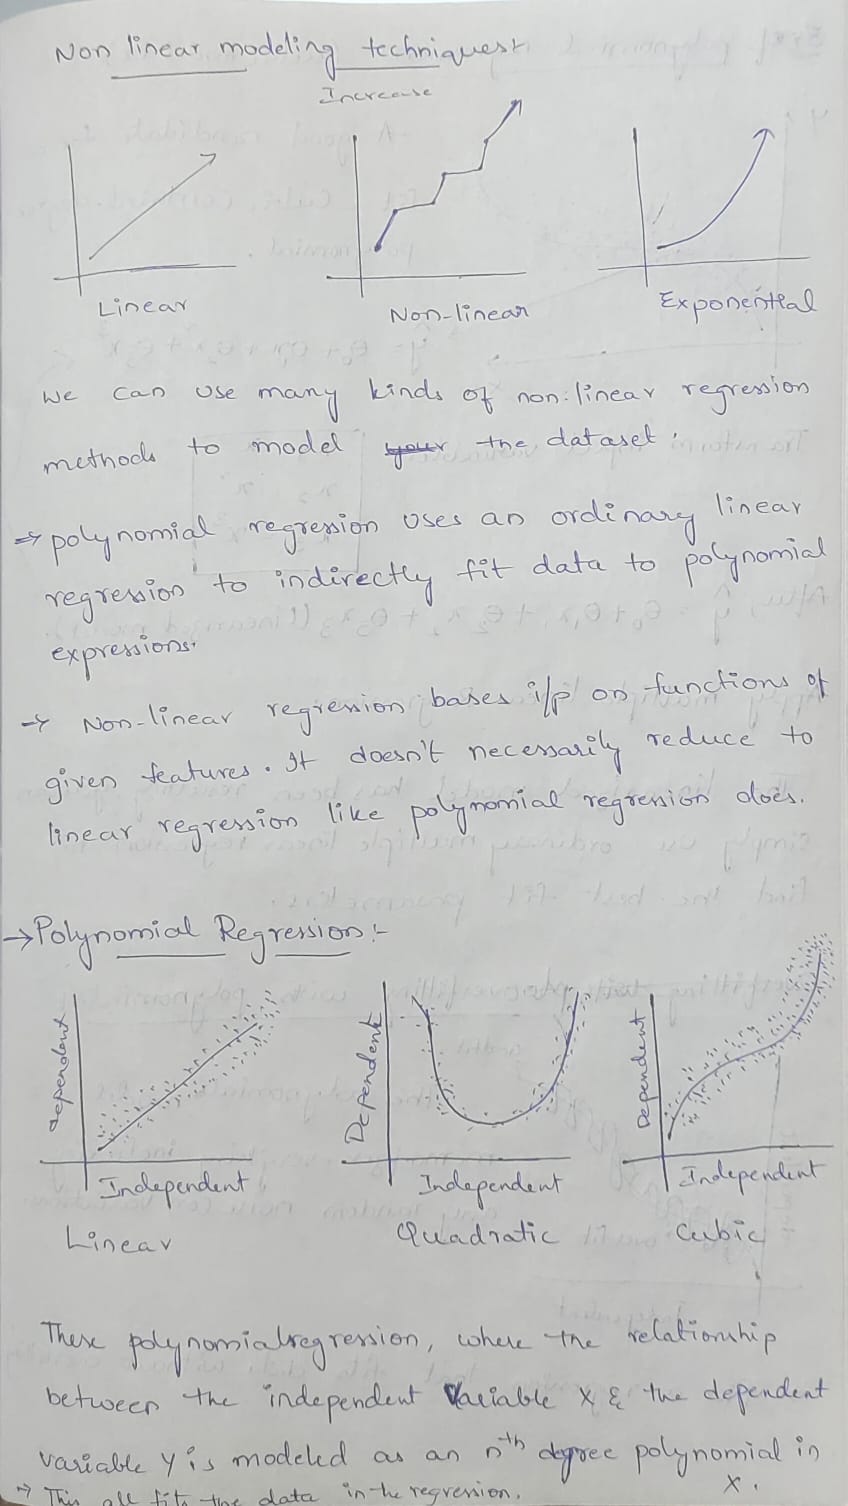 Non linear modeling techniques
Increase
Linear
Non-linear
Exponential
We can use many kinds of non-linear regression
methods to model the dataset.
⇒ polynomial regression uses an ordinary linear
regression to indirectly fit data to polynomial
expressions.
→ Non-linear regression bases i/p on functions of
given features. It doesn't necessarily reduce to
linear regression like polynomial regression does.
→ Polynomial Regression:-
dependent
Dependent
Dependent
Independent
Independent
Independent
Linear
Quadratic
Cubic
These polynomial regression, where the relationship
between the independent variable X & the dependent
variable Y is modeled as an nth degree polynomial in
X.
→ This all fits the data in the regression.